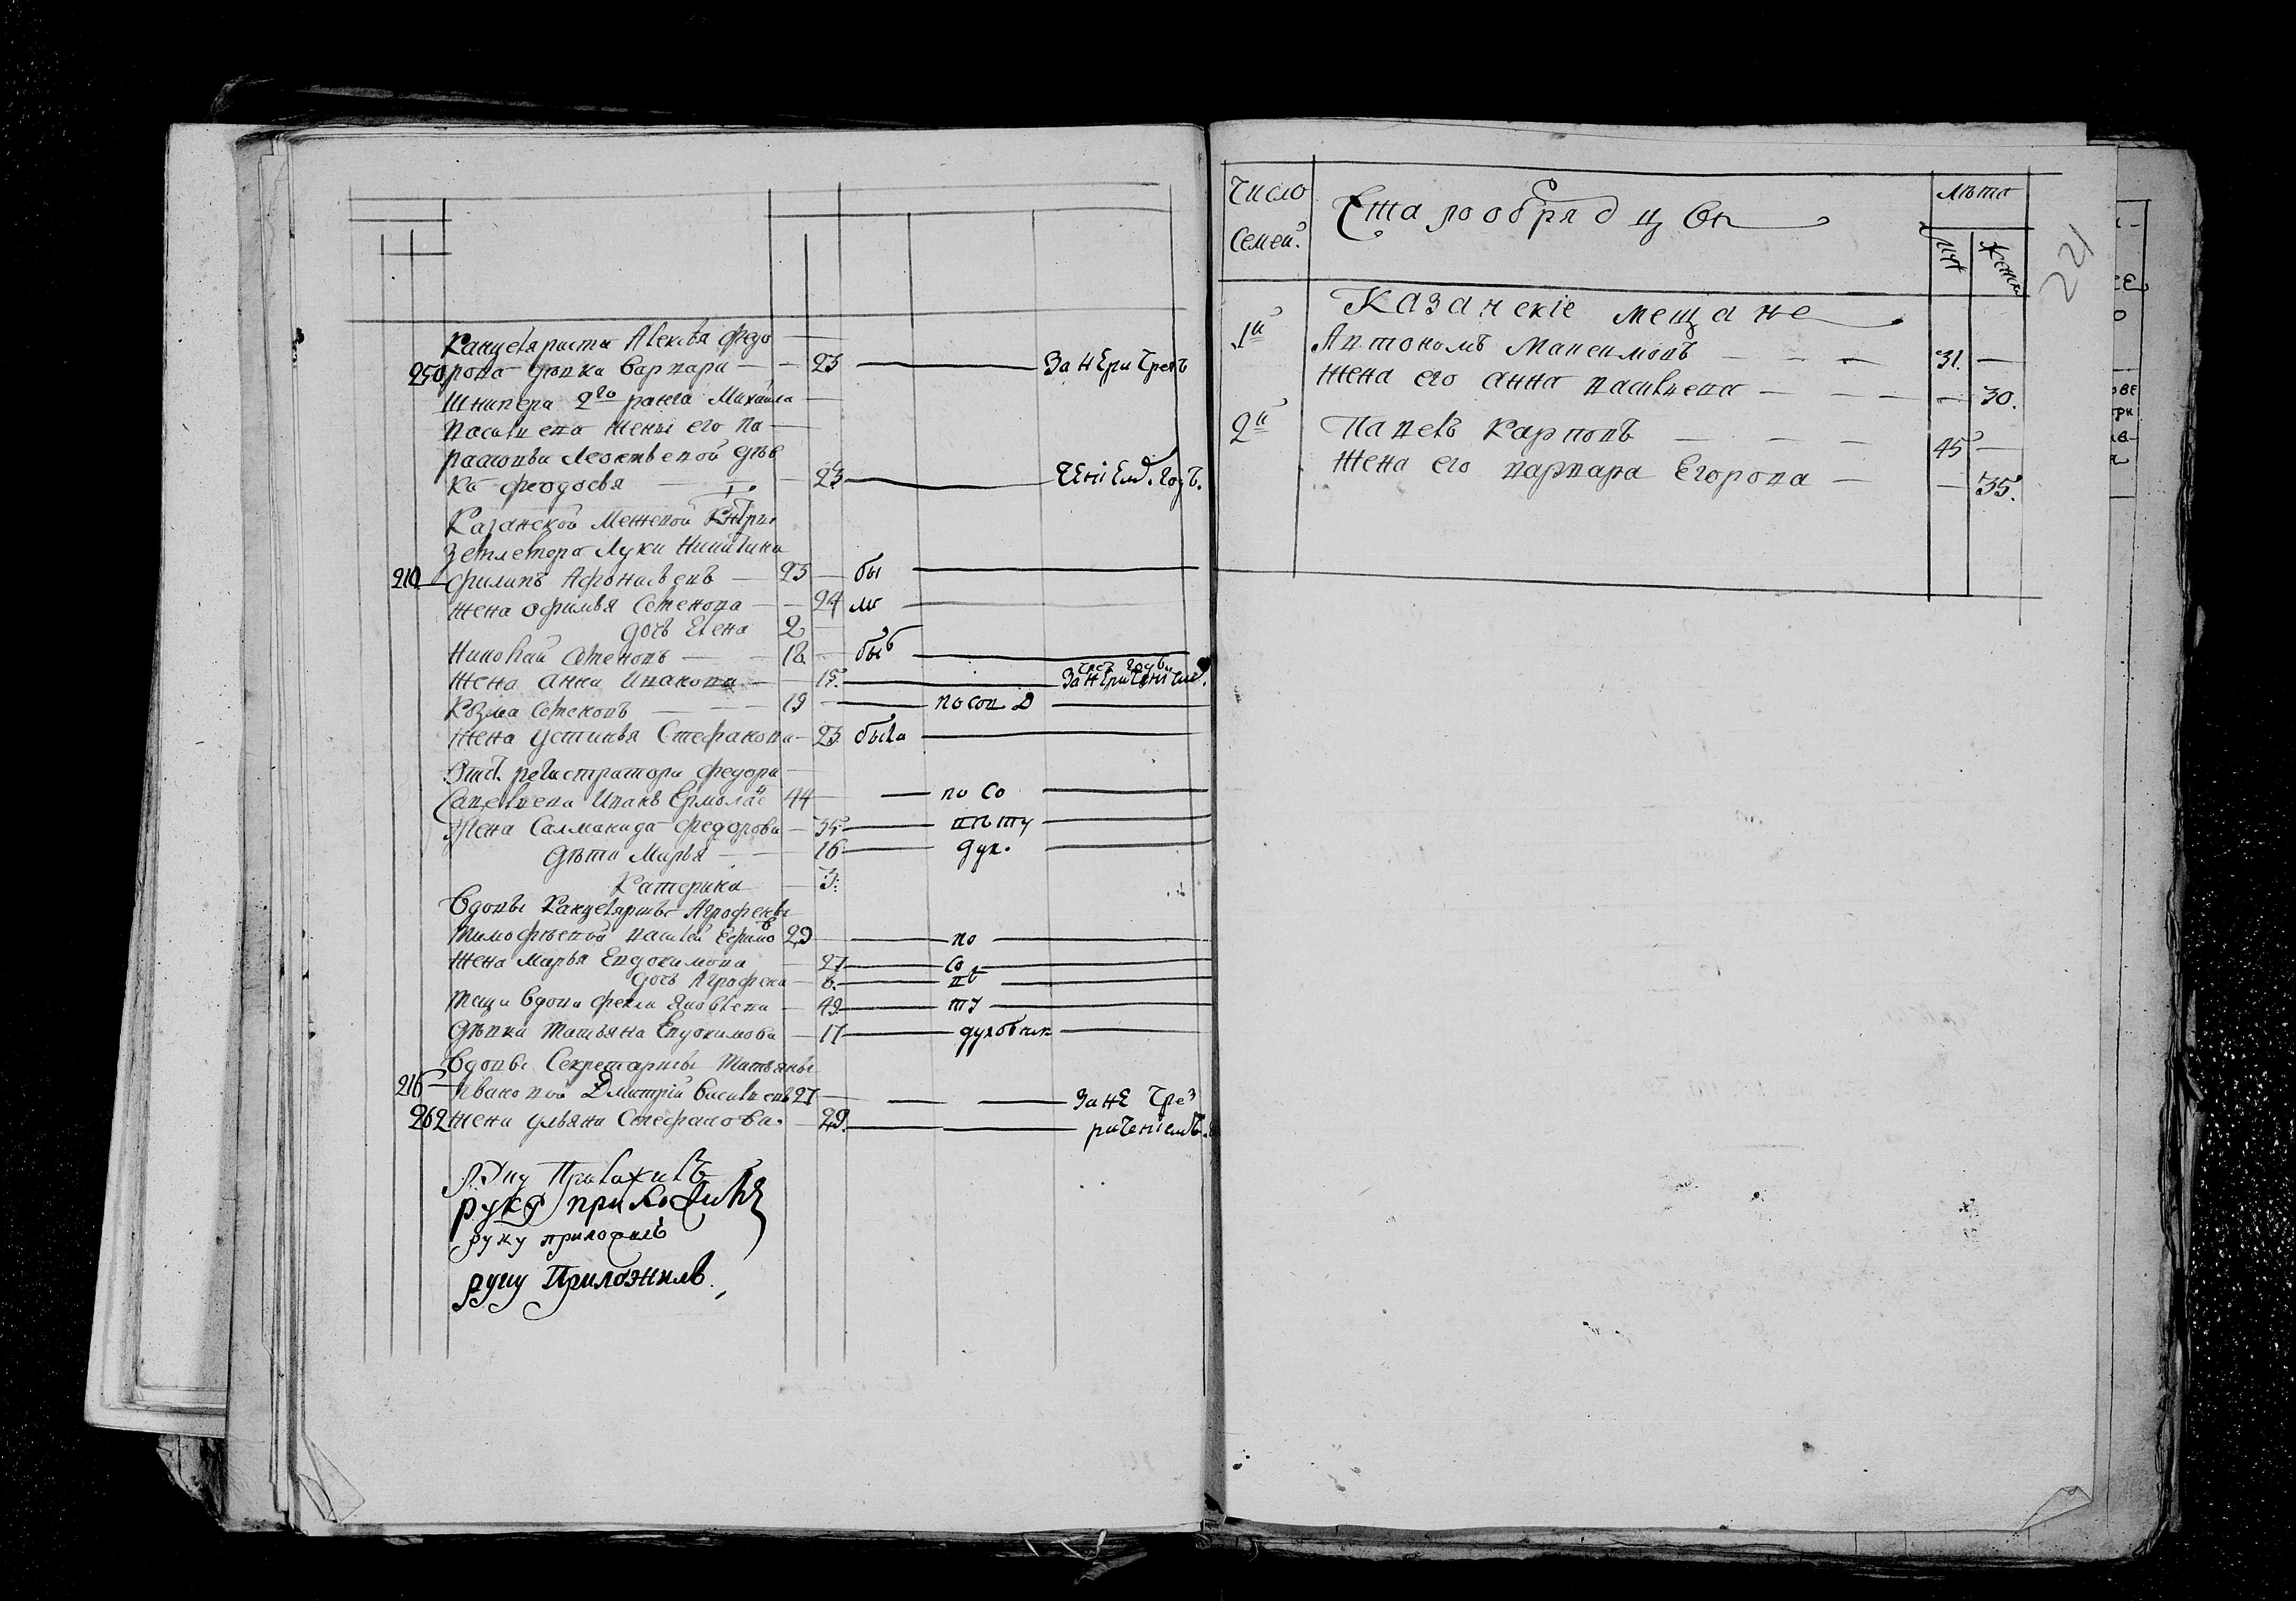 Канцеляриста Алексѣя Федо
250 рова дѣвка Варвара — — 23 — За нерачен
Шкипера 2го ранга Михаила
Васильева жены его Па
расковьи Леонтьевой дѣв
ка Феодосья — 23 — ченіем. годъ.
Казанской Межевой Кнтры
землемера Луки Никитина
210 Филипъ Афонасьевъ — 23 — бы
жена Офимья Семенова — 24 ли
дочь Елена 2
Николай Семеновъ — 18 — былъ
жена Анна Иванова — 15. — За нераченіем.
Козма Семеновъ — 19 — по сов Д
жена Устинья Стефанова — 23 была
Регистратора Федора
Савельева Иванъ Ермолае 44 — по со
Жена Саломанида Федорова — 35 — вѣту
дѣти Марья — 16 — дух.
Катерина — 3.
Вдовы Канцелярши Агрофены
Тимофѣевой Васілей Ефимо 29 — по
жена Марья Евдокимова 27 — со
дочь Агрофена — 8. — вѣ
теща вдова Фекла Яковлева — 49 — ту
дѣвка Татьяна Евдокимова — 17 — духовник
Вдовы Секретарши Татьяны
216 Ивановой Дмитрій Васильевъ 27 — За не
262 жена Ульяна Стефанова. — 29. — раченіемъ.
руку приложилъ
руку приложилъ
руку Приложилъ
Число Семей. Старообрядцы Лѣта
Муж Женск
221
Казанскіе мещане
1й Антономъ Максимовъ — — — 31. —
жена его Анна Васильева — — — — 30.
2й Павелъ Карповъ — — — 45 —
жена его Варвара Егорова — — 35.